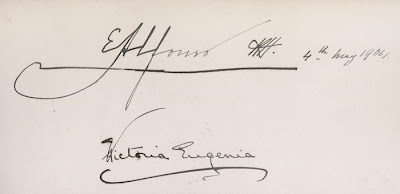 Alfonso XIII. 4th may 1906
Victoria Eugenia